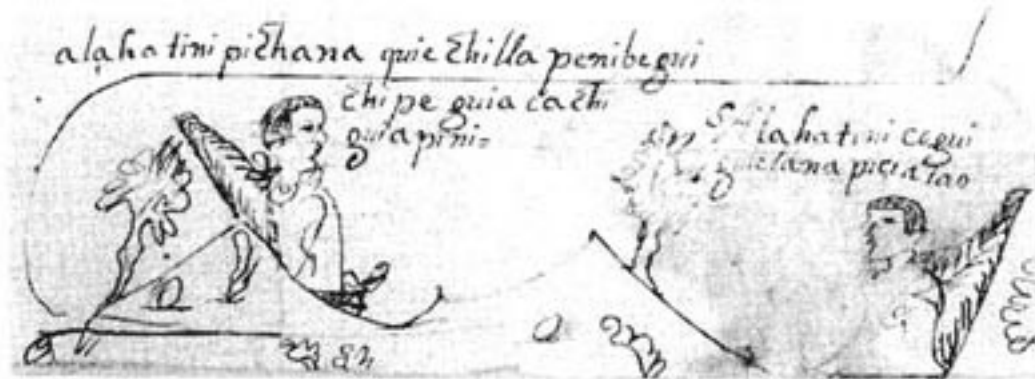 alahatini pichana quiechilla penibegui
chi pe guia cachi
guiapini=
lahatini cegui
guelana piciatao